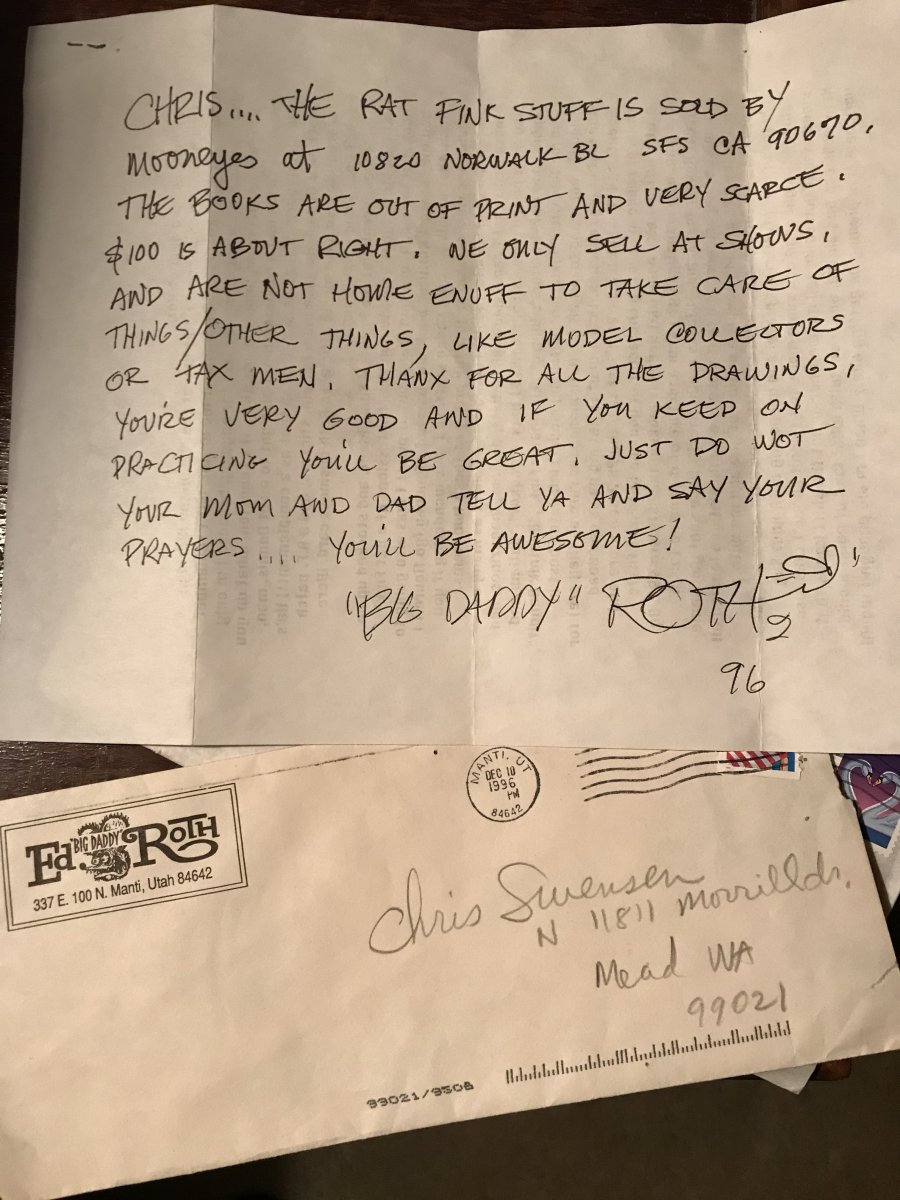 CHRIS.... THE RAT FINK STUFF IS SOLD BY
MOONEYES at 10820 NORWALK BL SFS CA 90670.
THE BOOKS ARE OUT OF PRINT AND VERY SCARCE.
$100 IS ABOUT RIGHT. WE ONLY SELL AT SHOWS,
AND ARE NOT HOME ENUFF TO TAKE CARE OF
THINGS/OTHER THINGS, LIKE MODEL COLLECTORS
OR TAX MEN. THANX FOR ALL THE DRAWINGS,
YOU'RE VERY GOOD AND IF YOU KEEP ON
PRACTICING YOU'LL BE GREAT. JUST DO WOT
YOUR MOM AND DAD TELL YA AND SAY YOUR
PRAYERS.... YOU'LL BE AWESOME!
"BIG DADDY" ROTH
2
96
Ed "BIG DADDY" ROTH
337 E. 100 N. Manti, Utah 84642
MANTI, UT
DEC 10
1996
PM
84642
Chris Swensen
N 11811 Morrill dr.
Mead WA
99021
99021/9508